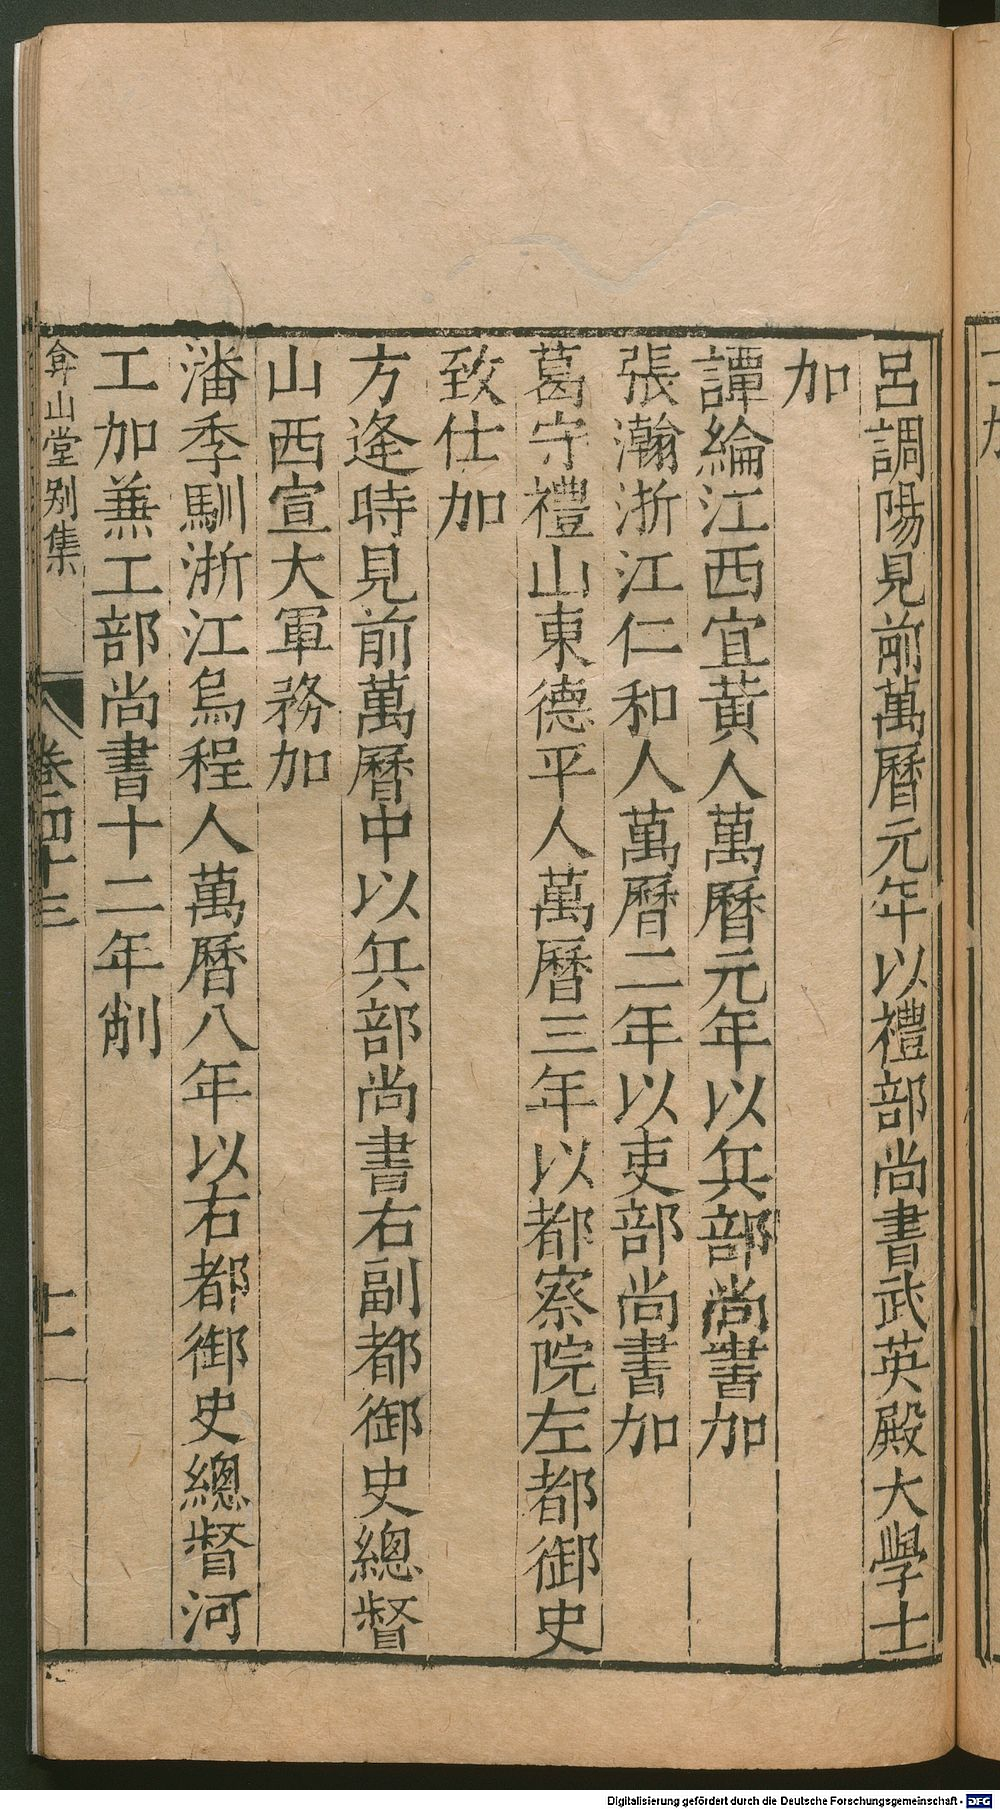 呂調陽見前萬曆元年以禮部尚書武英殿大學士
加
譚綸江西宜黃人萬曆元年以兵部尚書加
張瀚浙江仁和人萬曆二年以吏部尚書加
葛守禮山東德平人萬曆三年以都察院左都御史
致仕加
方逢時見前萬曆中以兵部尚書右副都御史總督
山西宣大軍務加
潘季馴浙江烏程人萬曆八年以右都御史總督河
工加兼工部尚書十二年削
弇山堂別集 卷四十三 十一
Digitalisierung gefördert durch die Deutsche Forschungsgemeinschaft - DFG